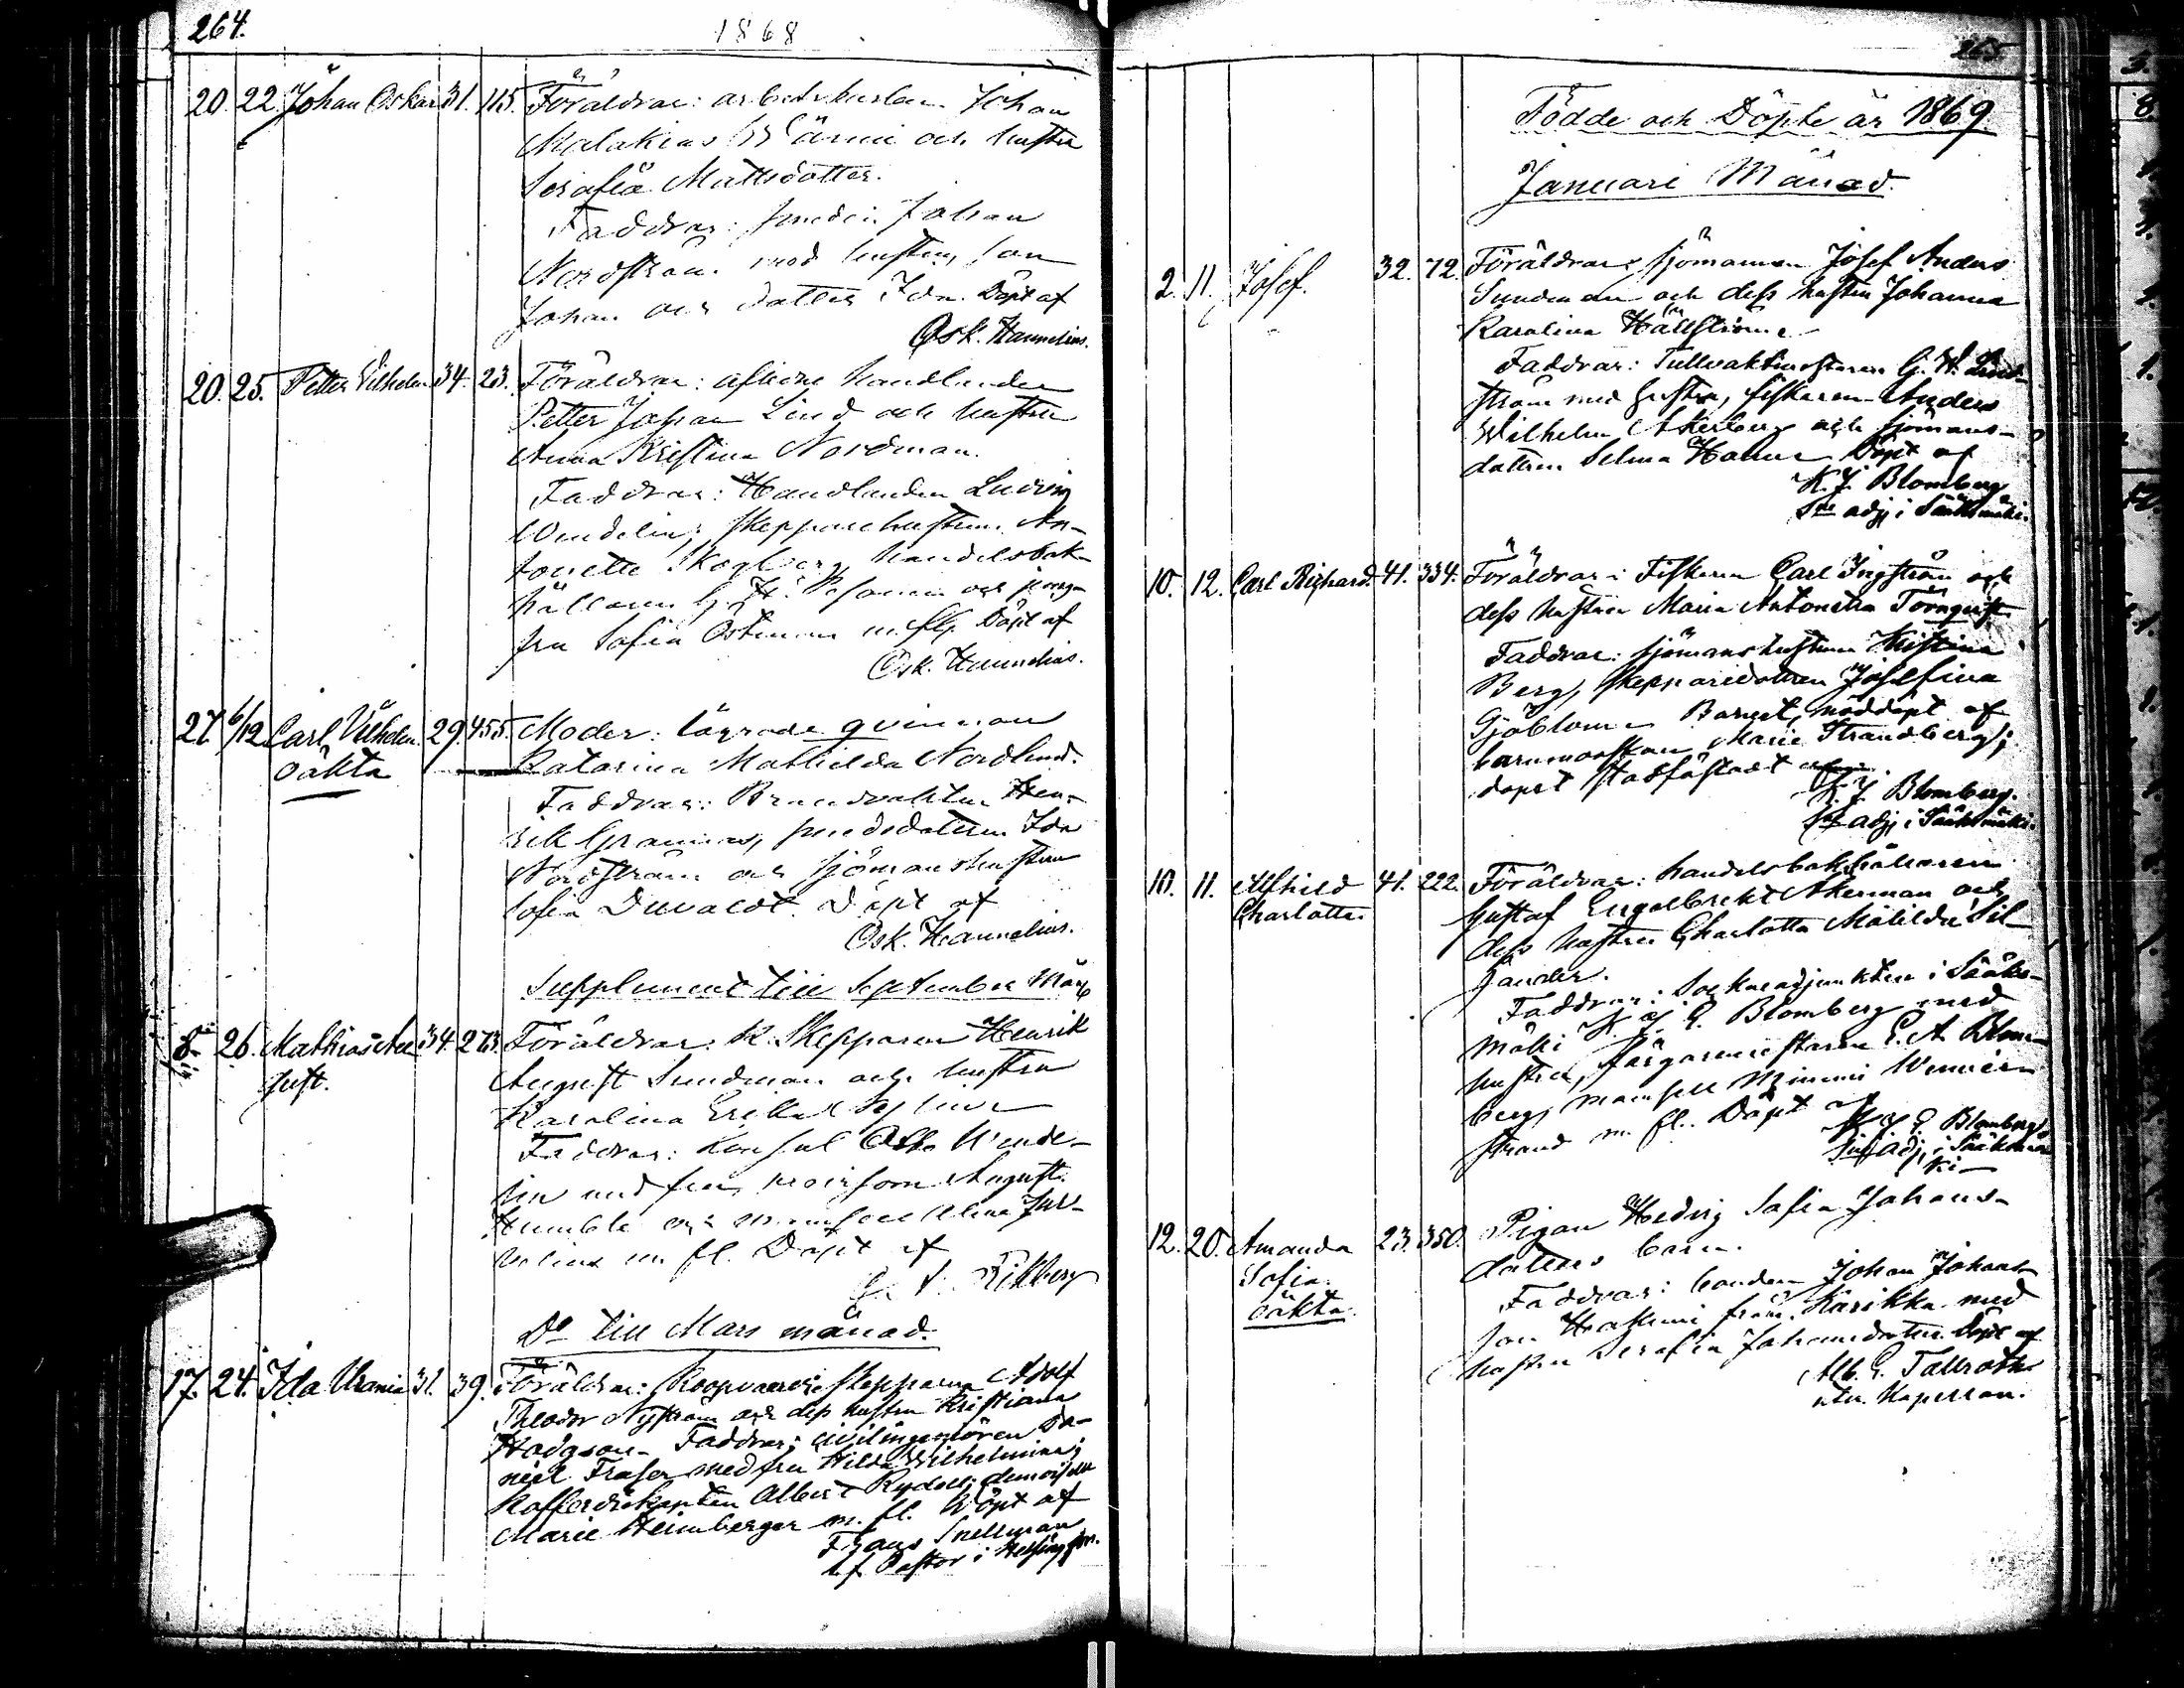 264.
1868
20. 22. Johan Oskar 31. 115. Föräldrar: arbetskarlen Johan
Malakias och hustru
Serafia Mattsdotter.
Faddrar: smeden Johan
Nordström med hustru, son
Johan och dotter Ida. Döpt af
Osk. Hannelius.
20. 25. Petter Vilhelm 34. 23. Föräldrar: aflidne handlanden
Petter Johan Lind och hustru
Anna Kristina Nordman.
Faddrar: Handlanden Ludvig
Wendelin, skepparehustrun An-
tonette Skogberg, handelsbok-
hållaren och jung-
fru Sofia Österman m. fl. Döpt af
Osk. Hannelius.
27. 6/12 Carl Vilhelm 29. 455. Moder: lägrade qvinnan
oäkta Katarina Mathilda Nordlund.
Faddrar: Brandvakten Hen-
rik Grannas, smedsdottren Ida
Nordström och sjömanshustrun
Sofia Duvaldt. Döpt af
Osk. Hannelius.
Supplement till September Mån
8. 26. Mathias 34. 273. Föräldrar: K. Skepparen Henrik
Just. August Sundman och hustru
Karolina Erika
Faddrar: Konsul Otto Wende-
lin med fru, August
Humble och
m. fl. Döpt af
Do till Mars månad.
17. 24. Ida Urania 31. 39. Föräldrar: Koopvaerdie skepparen Adolf
Theodor Nyström och dess hustru Kristiana
Hodgson. Faddrar: civilingeniören Da-
niel Fraser med fru Hilda Wilhelmina;
Kofferdikapten Albert Rydell; demoiselle
Marie Heimberger m. fl. Döpt af
Frans Snellman
t.f. Pastor i Helsingfors.
265.
Födde och Döpte år 1869.
Januari Månad.
2. 11. Josef. 32. 72. Föräldrar: sjömannen Josef Anders
Sundman och dess hustru Johanna
Karolina Hällström
Faddrar: Tullvaktmästaren G. W. Lind-
ström med hustru, fiskaren Anders
Wilhelm Åkerberg och sjömans-
dottren Selma Döpt af
K. J. Blomberg
Sne adj. i Sääksmäki.
10. 12. Carl Richard. 41. 334. Föräldrar: Fiskaren Carl Ingström och
dess hustru Maria Antonetta Törnqvist
Faddrar: sjömanshustrun Kristina
Berg, skepparedottren Josefina
Sjöblom. Barnet nöddöpt af
barnmorskan Marie Strandberg;
dopet stadfästadt af
K. J. Blomberg.
Sne adj. i Sääksmäki.
10. 11. Alfhild 41. 222. Föräldrar: handelsbokhållaren
Charlotta Gustaf Engelbrekt Åkerman och
dess hustru Charlotta Matilda Sil-
jander.
Faddrar: Socknadjunkten i Sääks-
mäki K. J. E. Blomberg med
hustru, färgaremästaren E. A. Blom-
berg, mamsell Mimmi Wenner-
strand m. fl. Döpt af
K. J. E. Blomberg
Sne adj. i Sääksmä-
ki
12. 20. Amanda 23. 350. Pigan Hedvig Sofia Johans-
Sofia dotters barn.
oäkta. Faddrar: bonden Johan Johans-
son från Karikka med
hustru Serafia Johansdotter. Döpt af
Alb. E. Tallroth